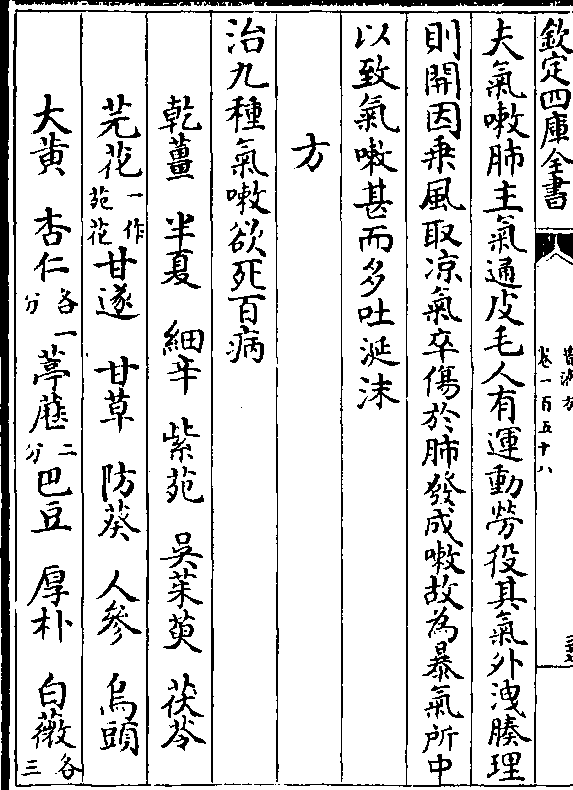 欽定四庫全書
普濟方
卷一百五十八
夫氣嗽肺主氣通皮毛人有運動勞役其氣外洩腠理
則開因乗風取凉氣卒傷於肺發成嗽故為暴氣所中
以致氣嗽甚而多吐涎沫
方
治九種氣嗽欲死百病
乾薑 半夏 細辛 紫苑 吳茱萸 茯苓
芫花一作苑花 甘遂 甘草 防葵 人參 烏頭
大黄 杏仁各一分 葶藶二分 巴豆 厚朴 白薇各三